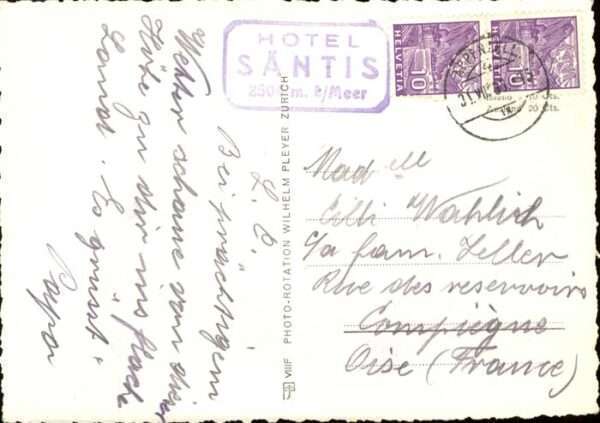 HOTEL
SÄNTIS
2504 m. ü/Meer
HELVETIA
10
HELVETIA
10
APPENZELL
Ausland 20 Cts.
VIIIF PHOTO-ROTATION WILHELM PLEYER ZÜRICH
L. C.
Bei prächtigem
Wetter schaue von dieser
Höhe zu dir ins flache
Land. Es grüsst
Papa
Mad lle
Cilli Wahlich
c/a fam. Zeller
Rue des reservoirs
Compiègne
Oise (France)